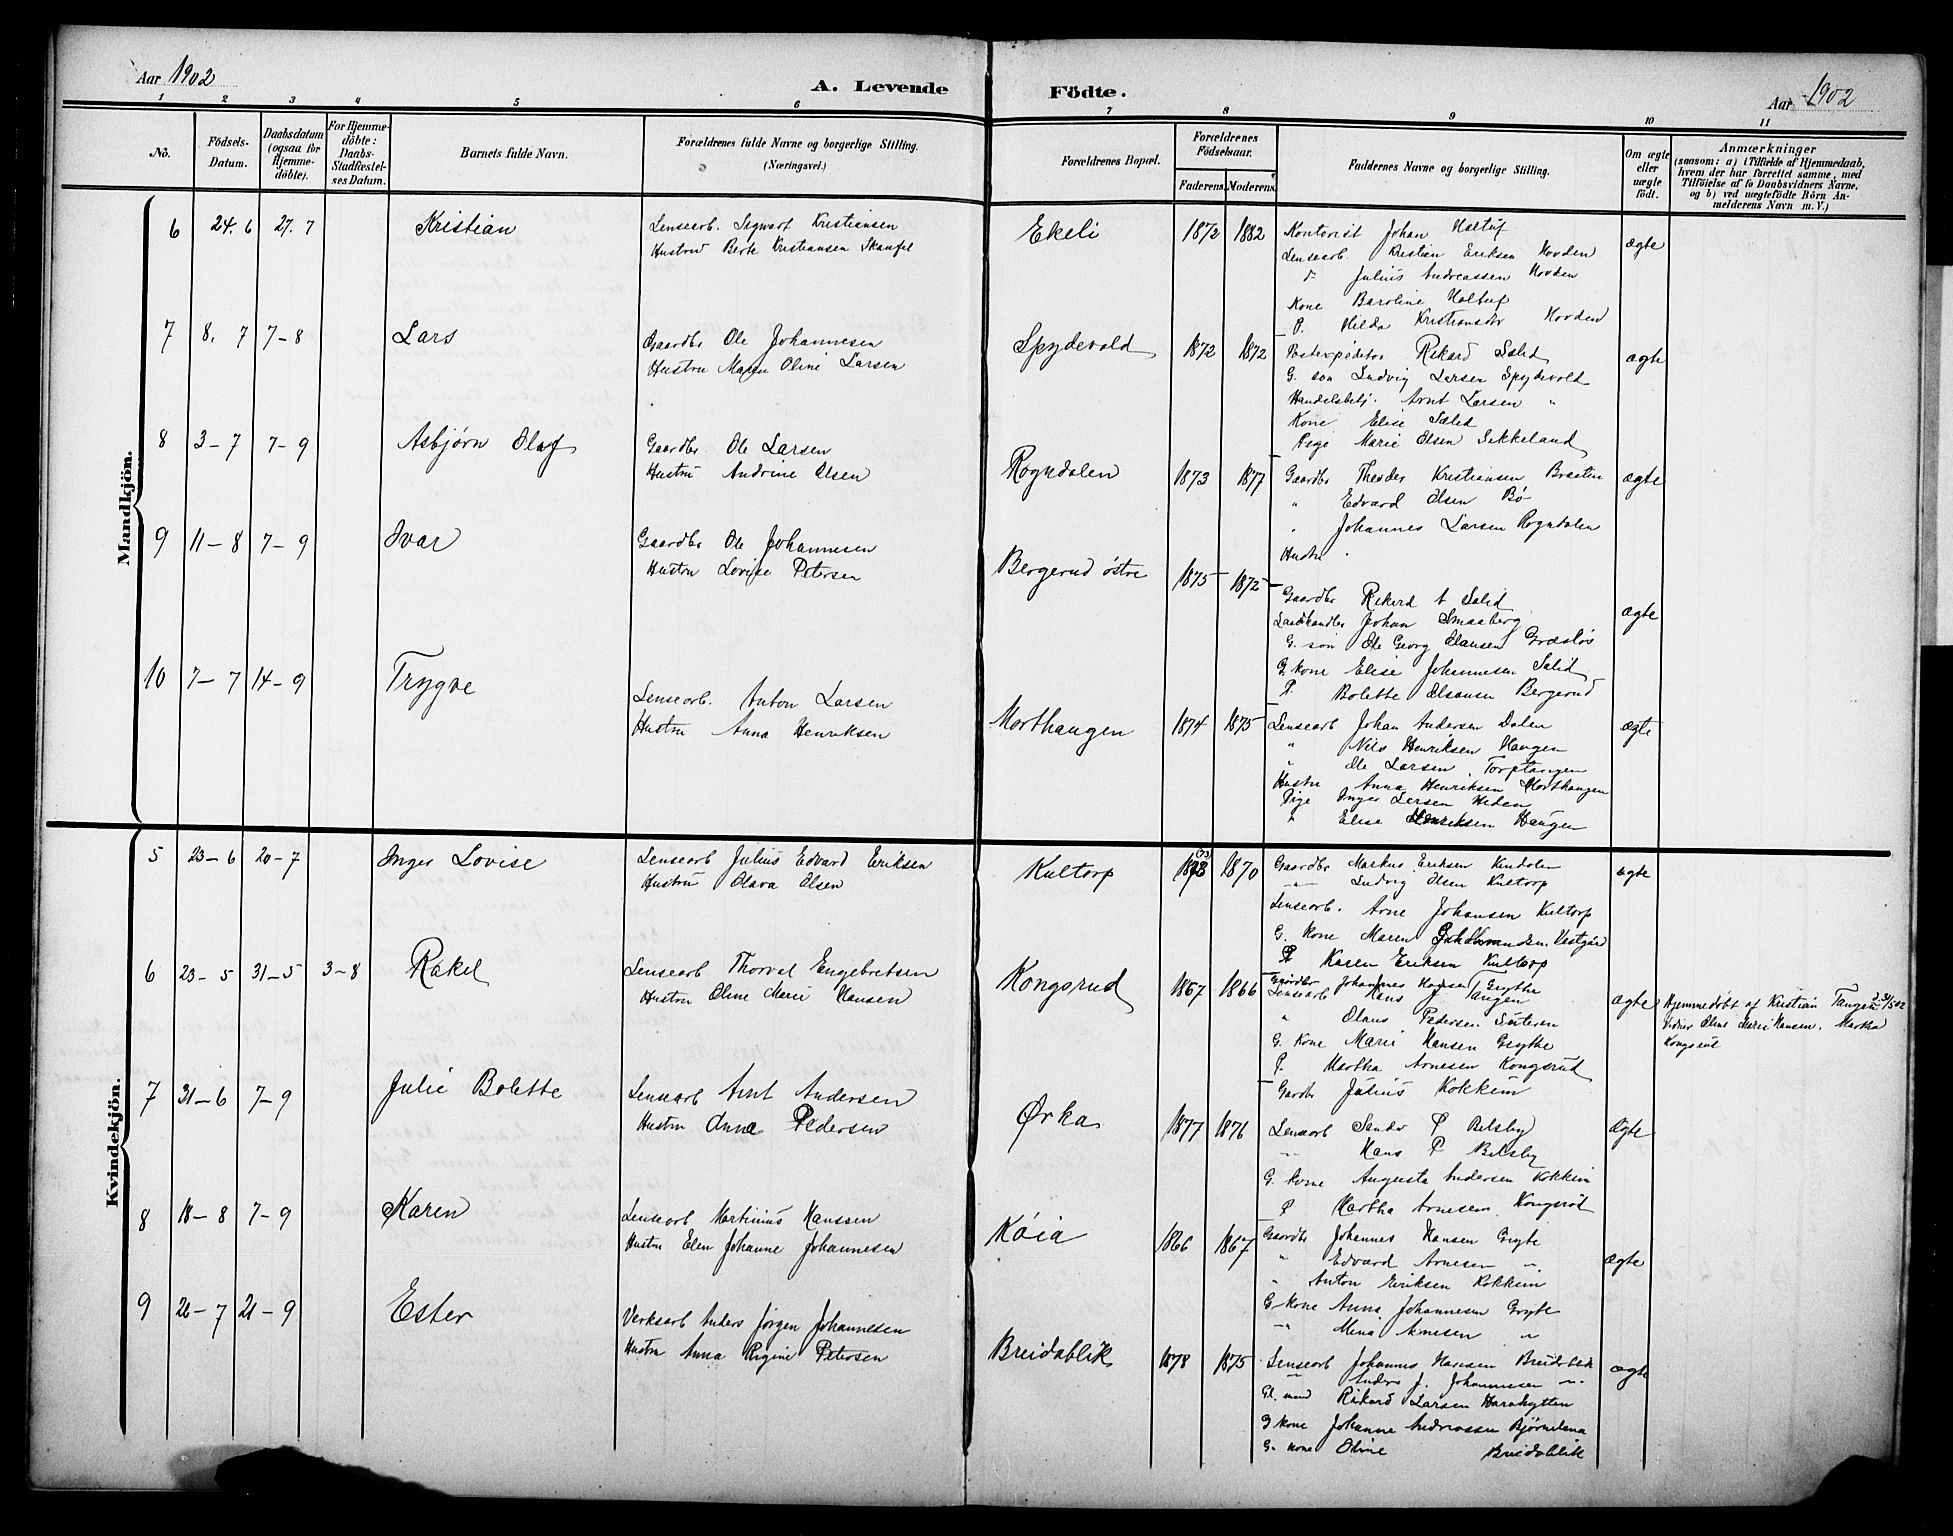 Aar 1902
A. Levende Födte.
Aar 1902
1 2 3 4 5 6 7 8 9 10 11
No.
Födsels-Datum.
Daabsdatum (ogsaa for Hjemme-döbte).
For Hjemme-döbte: Daabs-Stadfæstel-ses Datum.
Barnets fulde Navn.
Forældrenes fulde Navne og borgerlige Stilling.
(Næringsvei.)
Forældrenes Bopæl.
Forældrenes Födselsaar.
Faderens. Moderens.
Faddernes Navne og borgerlige Stilling.
Om ægte eller uægte födt.
Anmærkninger
(saasom: a) i Tilfælde af Hjemmedaab,
hvem der har forrettet samme, med
Tilföielse af to Daabsvidners Navne,
og b) ved uægtefödte Börn An-
melderens Navn m. V.)
Mandkjön.
6 24. 6 27. 7 Kristian
Lensearb. Sigvart Kristiansen
Hustru Berte Kristiansen
Ekeli 1872 1882
Kontorist Johan
Lensearb. Kristian Eriksen Hovden
Julius Andreassen Hovden
Kone Baroline
P. Hilda Hovden
ægte
7 8. 7 7–8 Lars
Gaardbr Ole Johannesen
Hustru Maren Oline Larsen
Spydevold 1872 1872
Rikard Solid
G. søn Ludvig Larsen Spydevold
Arnt Larsen "
Kone Elise Solid
Pige Marie Olsen Sikkeland
ægte
8 3–7 7–9 Asbjørn Olaf
Gaardbr Ole Larsen
Hustru Andrine Olsen
Rogndalen 1873 1877
Gaardbr Theodor Kristiansen Braaten
" Edvard Olsen Bø
" Johannes Larsen Rogndalen
Hustru
ægte
9 11–8 7–9 Ivar
Gaardbr Ole Johannesen
Hustru Lovise Petersen
Bergerud østre 1875 1872
Gaardbr Rikard A Solid
Landhandler Johan Smaaberg
G. søn Ole Georg Olausen
G. kone Elise Johannesen Solid
P. Bolette Bergerud
ægte
10 7–7 14–9 Trygve
Lensearb. Anton Larsen
Hustru Anna Henriksen
Morthaugen 1874 1875
Lensearb Johan Andersen Dalen
" Nils Henriksen Haugen
" Ole Larsen Torptangen
Hustru Anna Henriksen Morthaugen
Pige Inger Larsen Heden
" Elise Henriksen Haugen
ægte
Kvindekjön.
5 23–6 20–7 Inger Lovise
Lensearb Julius Edvard Eriksen
Hustru Olava Olsen
Kultorp 1870
Gaardbr Markus Eriksen
" Ludvig Olsen Kultorp
Lensearb. Arne Johansen Kultorp
G. kone Maren Vestgård
P Karen Eriksen Kultorp
ægte
6 23–5 31–5 3–8 Rakel
Lensearb Thorval Engebretsen
Hustru Oline Marie Hansen
Kongsrud 1867 1866
Gaardbr Johannes Hansen Grythe
Lensearb Hans J Tangen
" Olaus Pedersen
G. Kone Marie Hansen Grythe
P. Martha Arnesen Kongsrud
ægte
Hjemmedøbt af Kristian Tangen 31/5 02
Vidner Oline Marie Hansen, Martha
Kongsrud
7 31–6 7–9 Julie Bolette
Lensearb Arnt Andersen
Hustru Anna Pedersen
Ørka 1877 1876
Gaardbr Julius Kokkim
Lensearb Sander P Belsby
" Hans P Belsby
G. kone Augusta Andersen Kokkim
P Martha Arnesen Kongsrød
ægte
8 18–8 7–9 Karen
Lensearb Martinius Hanssen
Hustru Elen Johanne Johannesen
Køia 1866 1867
Gaardbr Johannes Hansen Gryte
" Edvard Arnesen "
" Anton Eriksen Kokkim
G. kone Anna Johannesen Gryte
" Mina Arnesen "
ægte
9 26–7 21–9 Ester
Verksarb Anders Jørgen Johannesen
Hustru Anna Regine Petersen
Breidablik 1878 1875
Lensearb Johannes Hansen Breidablik
" Anders J. Johannesen "
Rikard Larsen Harahytten
G kone Johanne Andreassen
G. kone Oline Breidablik
ægte